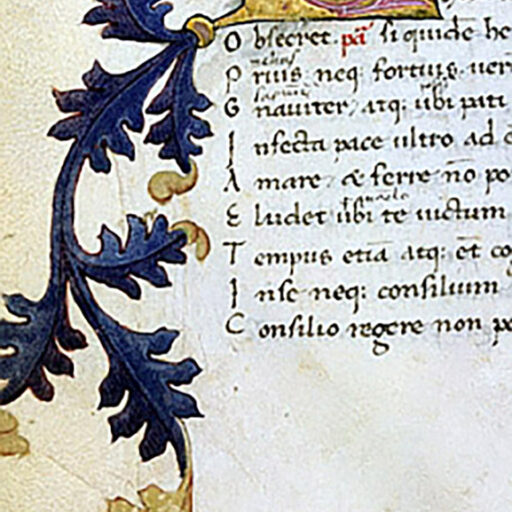 Obsecret. pā si quidē he
Prius neq: fortius uer
Gnauiter, atq: ubi pati
Infecta pace ultro ad
Amare, & ferre nō po
Eludet ubi te uictum
Tempus etiā atq: ēt co
Inse neq: consilium
Consilio regere non po